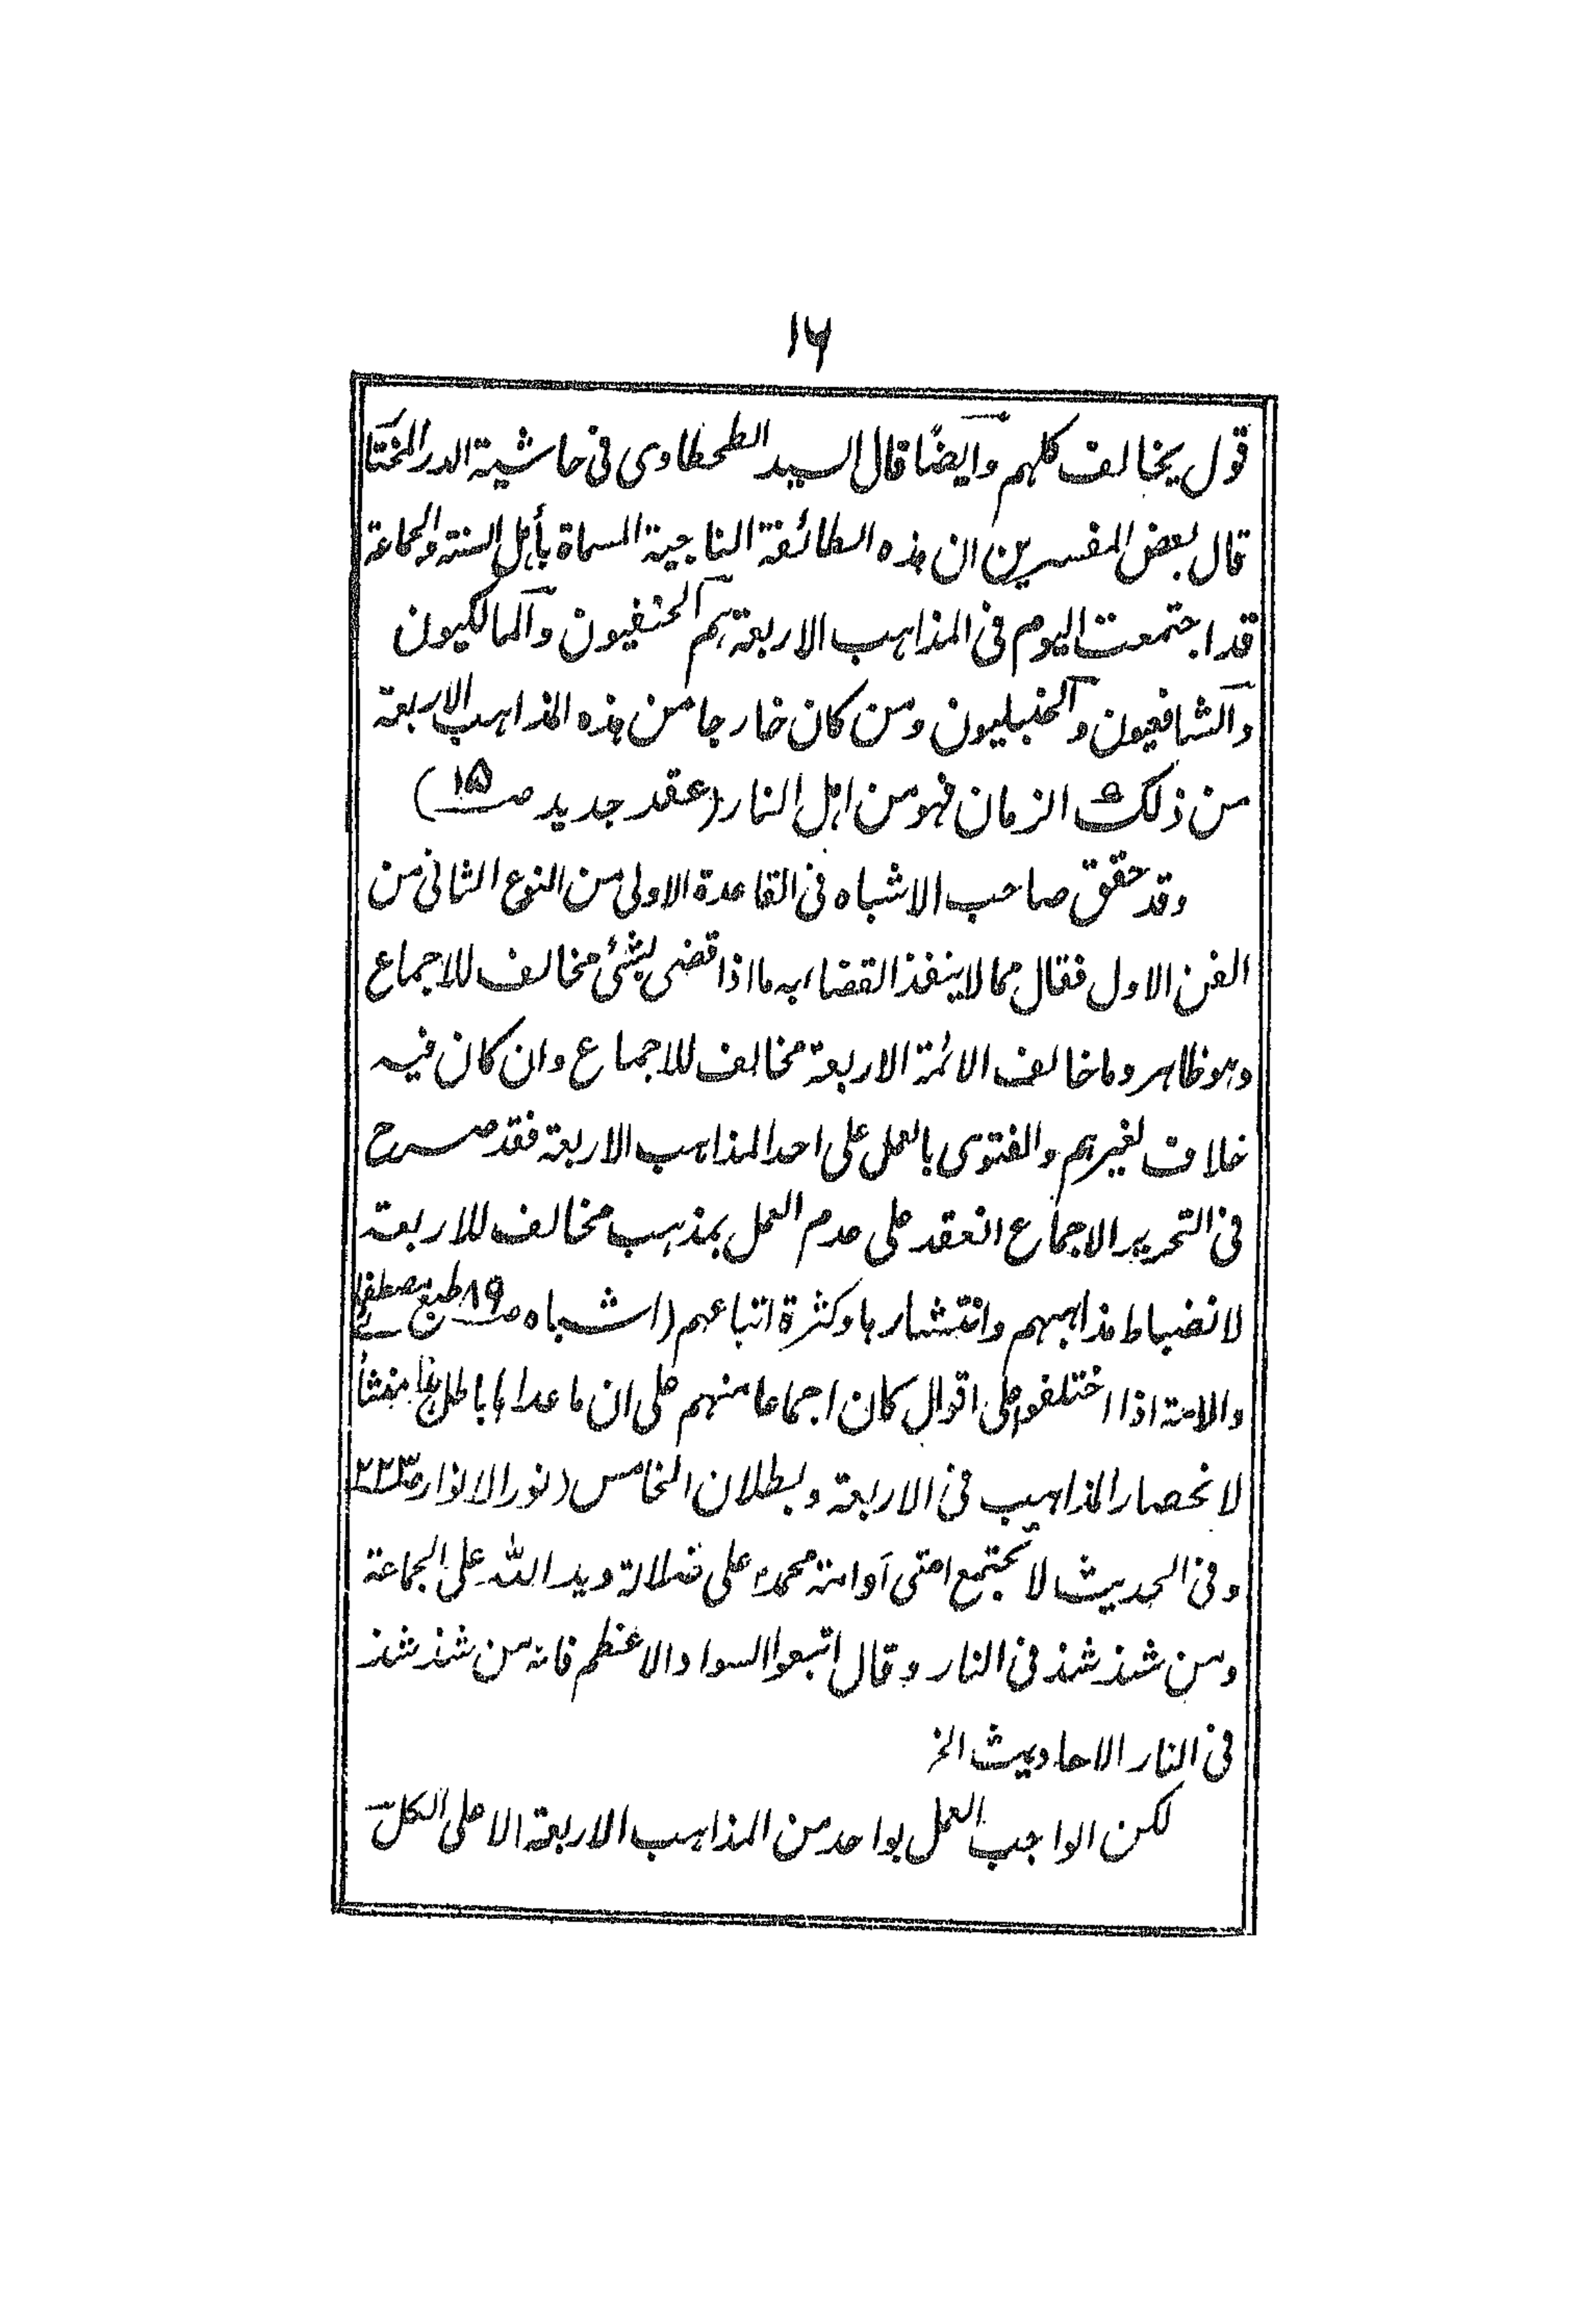 ۱۶
قول يخالف كلهم وايضًا قال السيد الطحطاوى فى حاشية الدر المختا
قال بعض المفسرين ان هذه الطائفة الناجية المسماة بأهل السنة والجماعة
قد اجتمعت اليوم فى المذاهب الاربعة هم الحنفيون والمالكيون
والشافعيون والحنبليون ومن كان خارجا من هذه المذاهب الاربعة
من ذلك الزمان فهو من اهل النار (عقد جديد صـ ۱۵)
وقد حقق صاحب الاشباه فى القاعدة الاولى من النوع الثانى من
الفن الاول فقال مما لا ينفذ القضاء به ما اذا قضى بشئ مخالف للاجماع
وهو ظاهر وما خالف الائمة الاربعة مخالف للاجماع وان كان فيه
خلاف لغيرهم والفتوى بالعمل على احد المذاهب الاربعة فقد صرح
فى التحرير الاجماع انعقد على عدم العمل بمذهب مخالف للاربعة
لانضباط مذاهبهم وانتشارها وكثرة اتباعهم (اشباه صـ ۸۹ طبع مصطفائى
والامة اذا اختلفوا على اقوال كان اجماعا منهم على ان ما عداها باطل هذا منشأ
لانحصار المذاهب فى الاربعة وبطلان الخامس (نور الانوار صـ ۲۲۳
وفى الحديث لا تجتمع امتى أو امة محمد على ضلالة ويد الله على الجماعة
ومن شذ شذ فى النار وقال اتبعوا السواد الاعظم فانه من شذ شذ
فى النار الاحاديث الخ
لكن الواجب العمل بواحد من المذاهب الاربعة الا على الكل